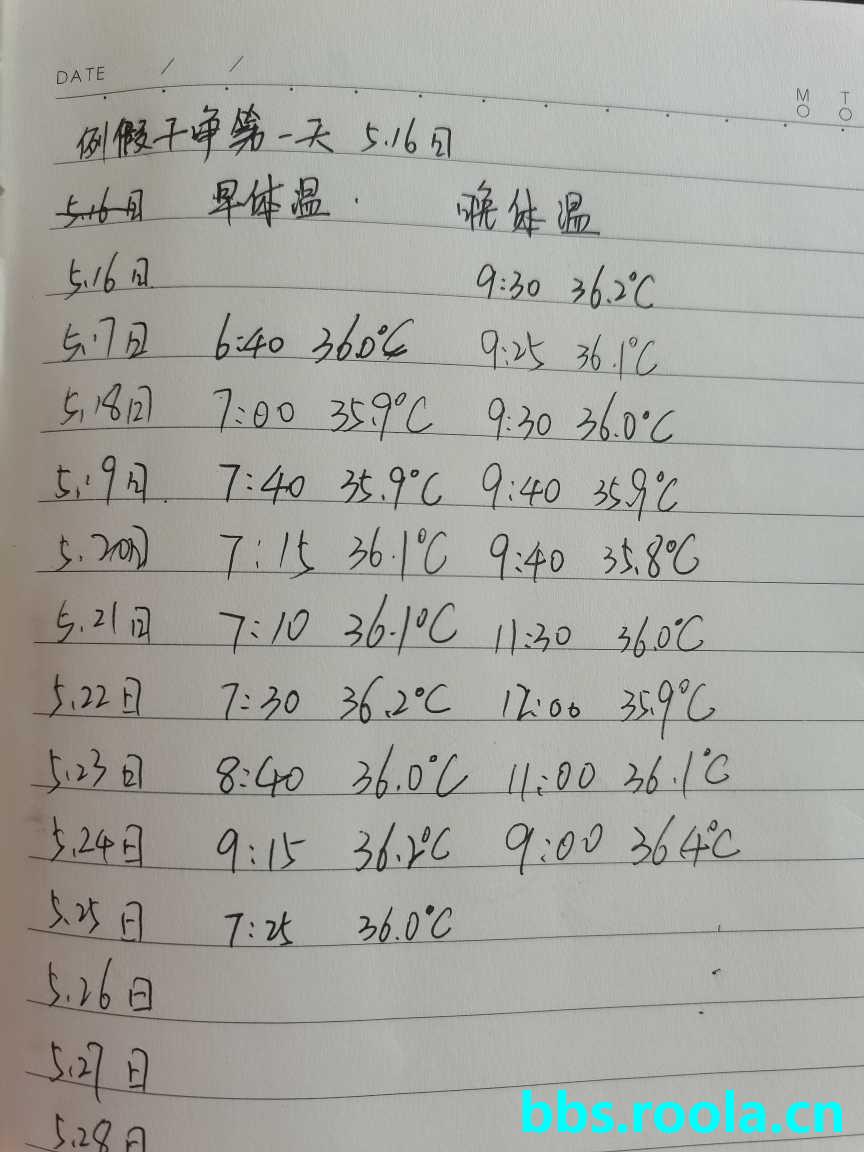 DATE / /
M T
例假干净第一天 5.16日
5.16日 早体温 . 晚体温
5.16日 9:30 36.2°C
5.17日 6:40 36.0°C 9:25 36.1°C
5.18日 7:00 35.9°C 9:30 36.0°C
5.19日 7:40 35.9°C 9:40 35.9°C
5.20日 7:15 36.1°C 9:40 35.8°C
5.21日 7:10 36.1°C 11:30 36.0°C
5.22日 7:30 36.2°C 12:00 35.9°C
5.23日 8:40 36.0°C 11:00 36.1°C
5.24日 9:15 36.2°C 9:00 36.4°C
5.25日 7:25 36.0°C
5.26日
5.27日
5.28日
bbs.roola.cn